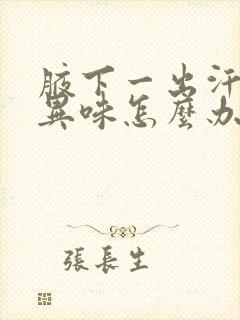 腋下一出汗
異味怎麼办
張長生